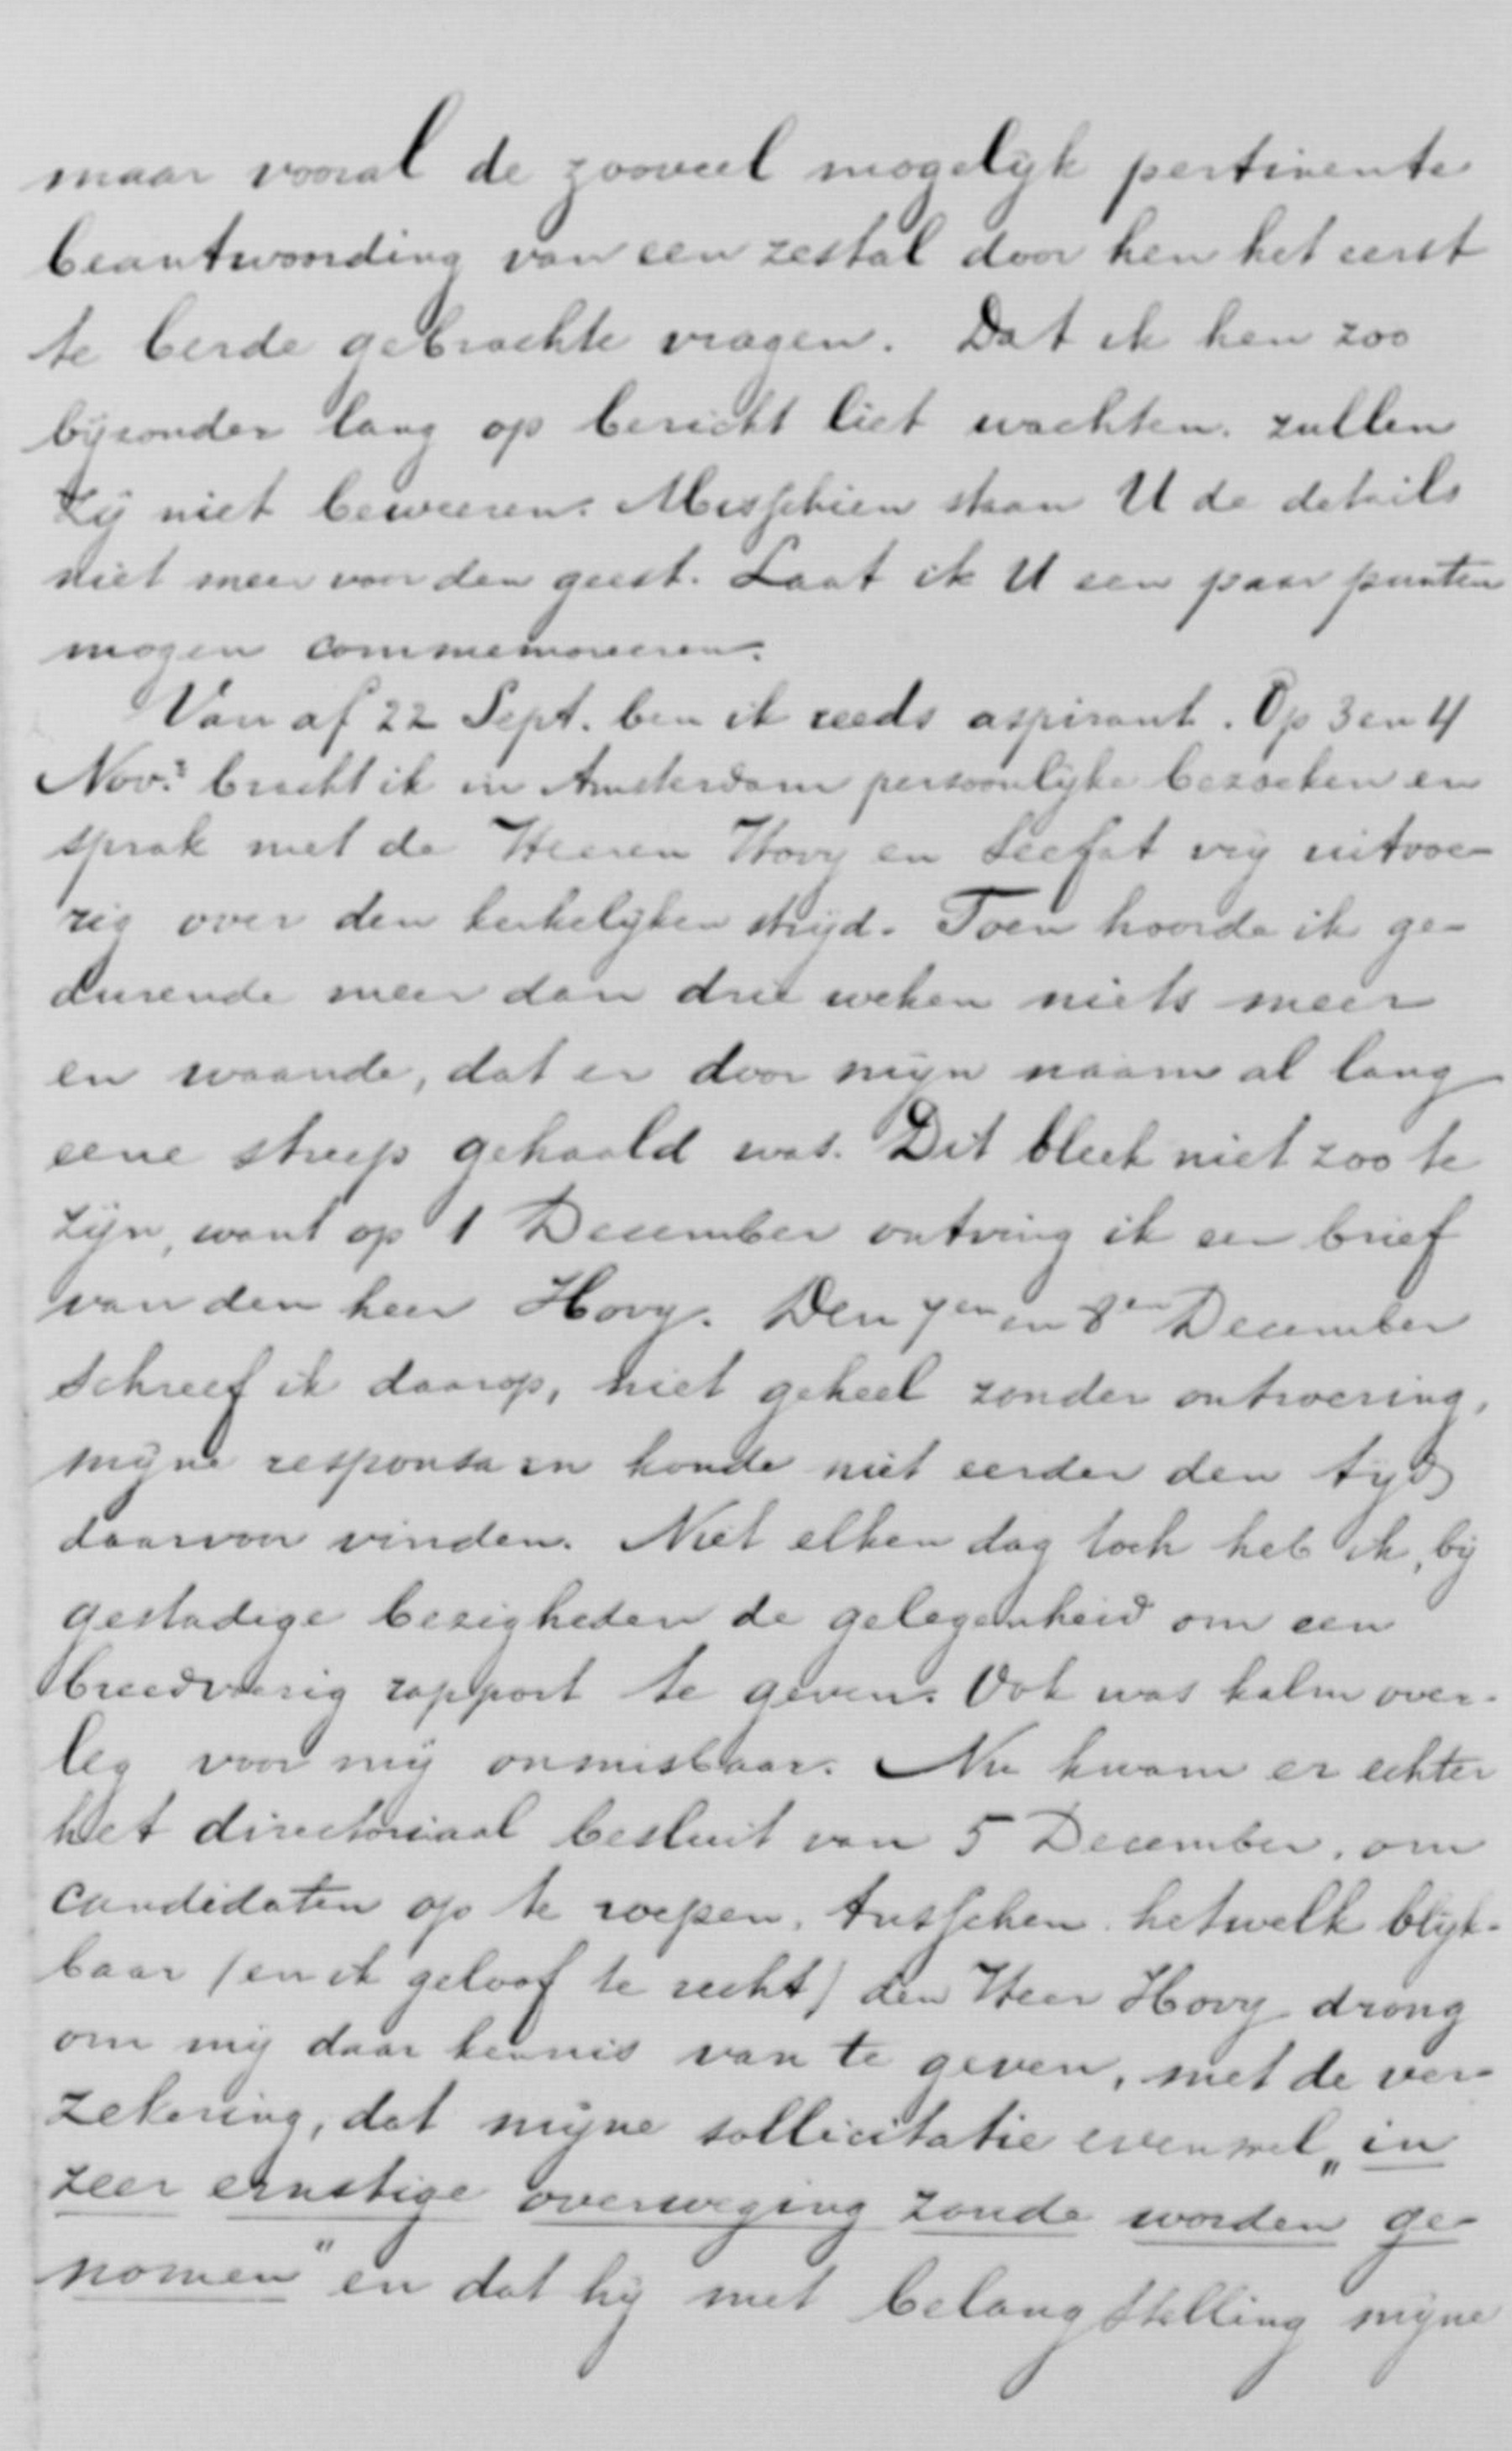 maar vooral de zooveel mogelijk pertinente
beantwoording van een zestal door hen het eerst
te berde gebrachte vragen. Dat ik hen zoo
bijzonder lang op bericht liet wachten, zullen
zij niet beweeren. Misschien staan U de details
niet meer voor den geest. Laat ik U een paar punten
mogen commemoreeren.
Van af 22 Sept. ben ik reeds aspirant. Op 3 en 4
Nov. bracht ik in Amsterdam persoonlijke bezoeken en
sprak met de Heeren Hovy en Seefat vrij uitvoe-
rig over den kerkelijken strijd. Toen hoorde ik ge-
durende meer dan drie weken niets meer
en waande, dat er door mijn naam al lang
eene streep gehaald was. Dit bleek niet zoo te
zijn, want op 1 December ontving ik een brief
van den heer Hovy. Den 7en en 8en December
schreef ik daarop, niet geheel zonder ontroering,
mijne responsa en konde niet eerder den tijd
daarvoor vinden. Niet elken dag toch heb ik, bij
gestadige bezigheden de gelegenheid om een
breedvoerig rapport te geven. Ook was kalm over-
leg voor mij onmisbaar. Nu kwam er echter
het directoriaal besluit van 5 December, om
candidaten op te roepen, tusschen hetwelk blijk-
baar (en ik geloof te recht) den Heer Hovy drong
om mij daar kennis van te geven, met de ver-
zekering, dat mijne sollicitatie evenwel „in
zeer ernstige overweging zoude worden ge-
nomen" en dat hij met belangstelling mijne